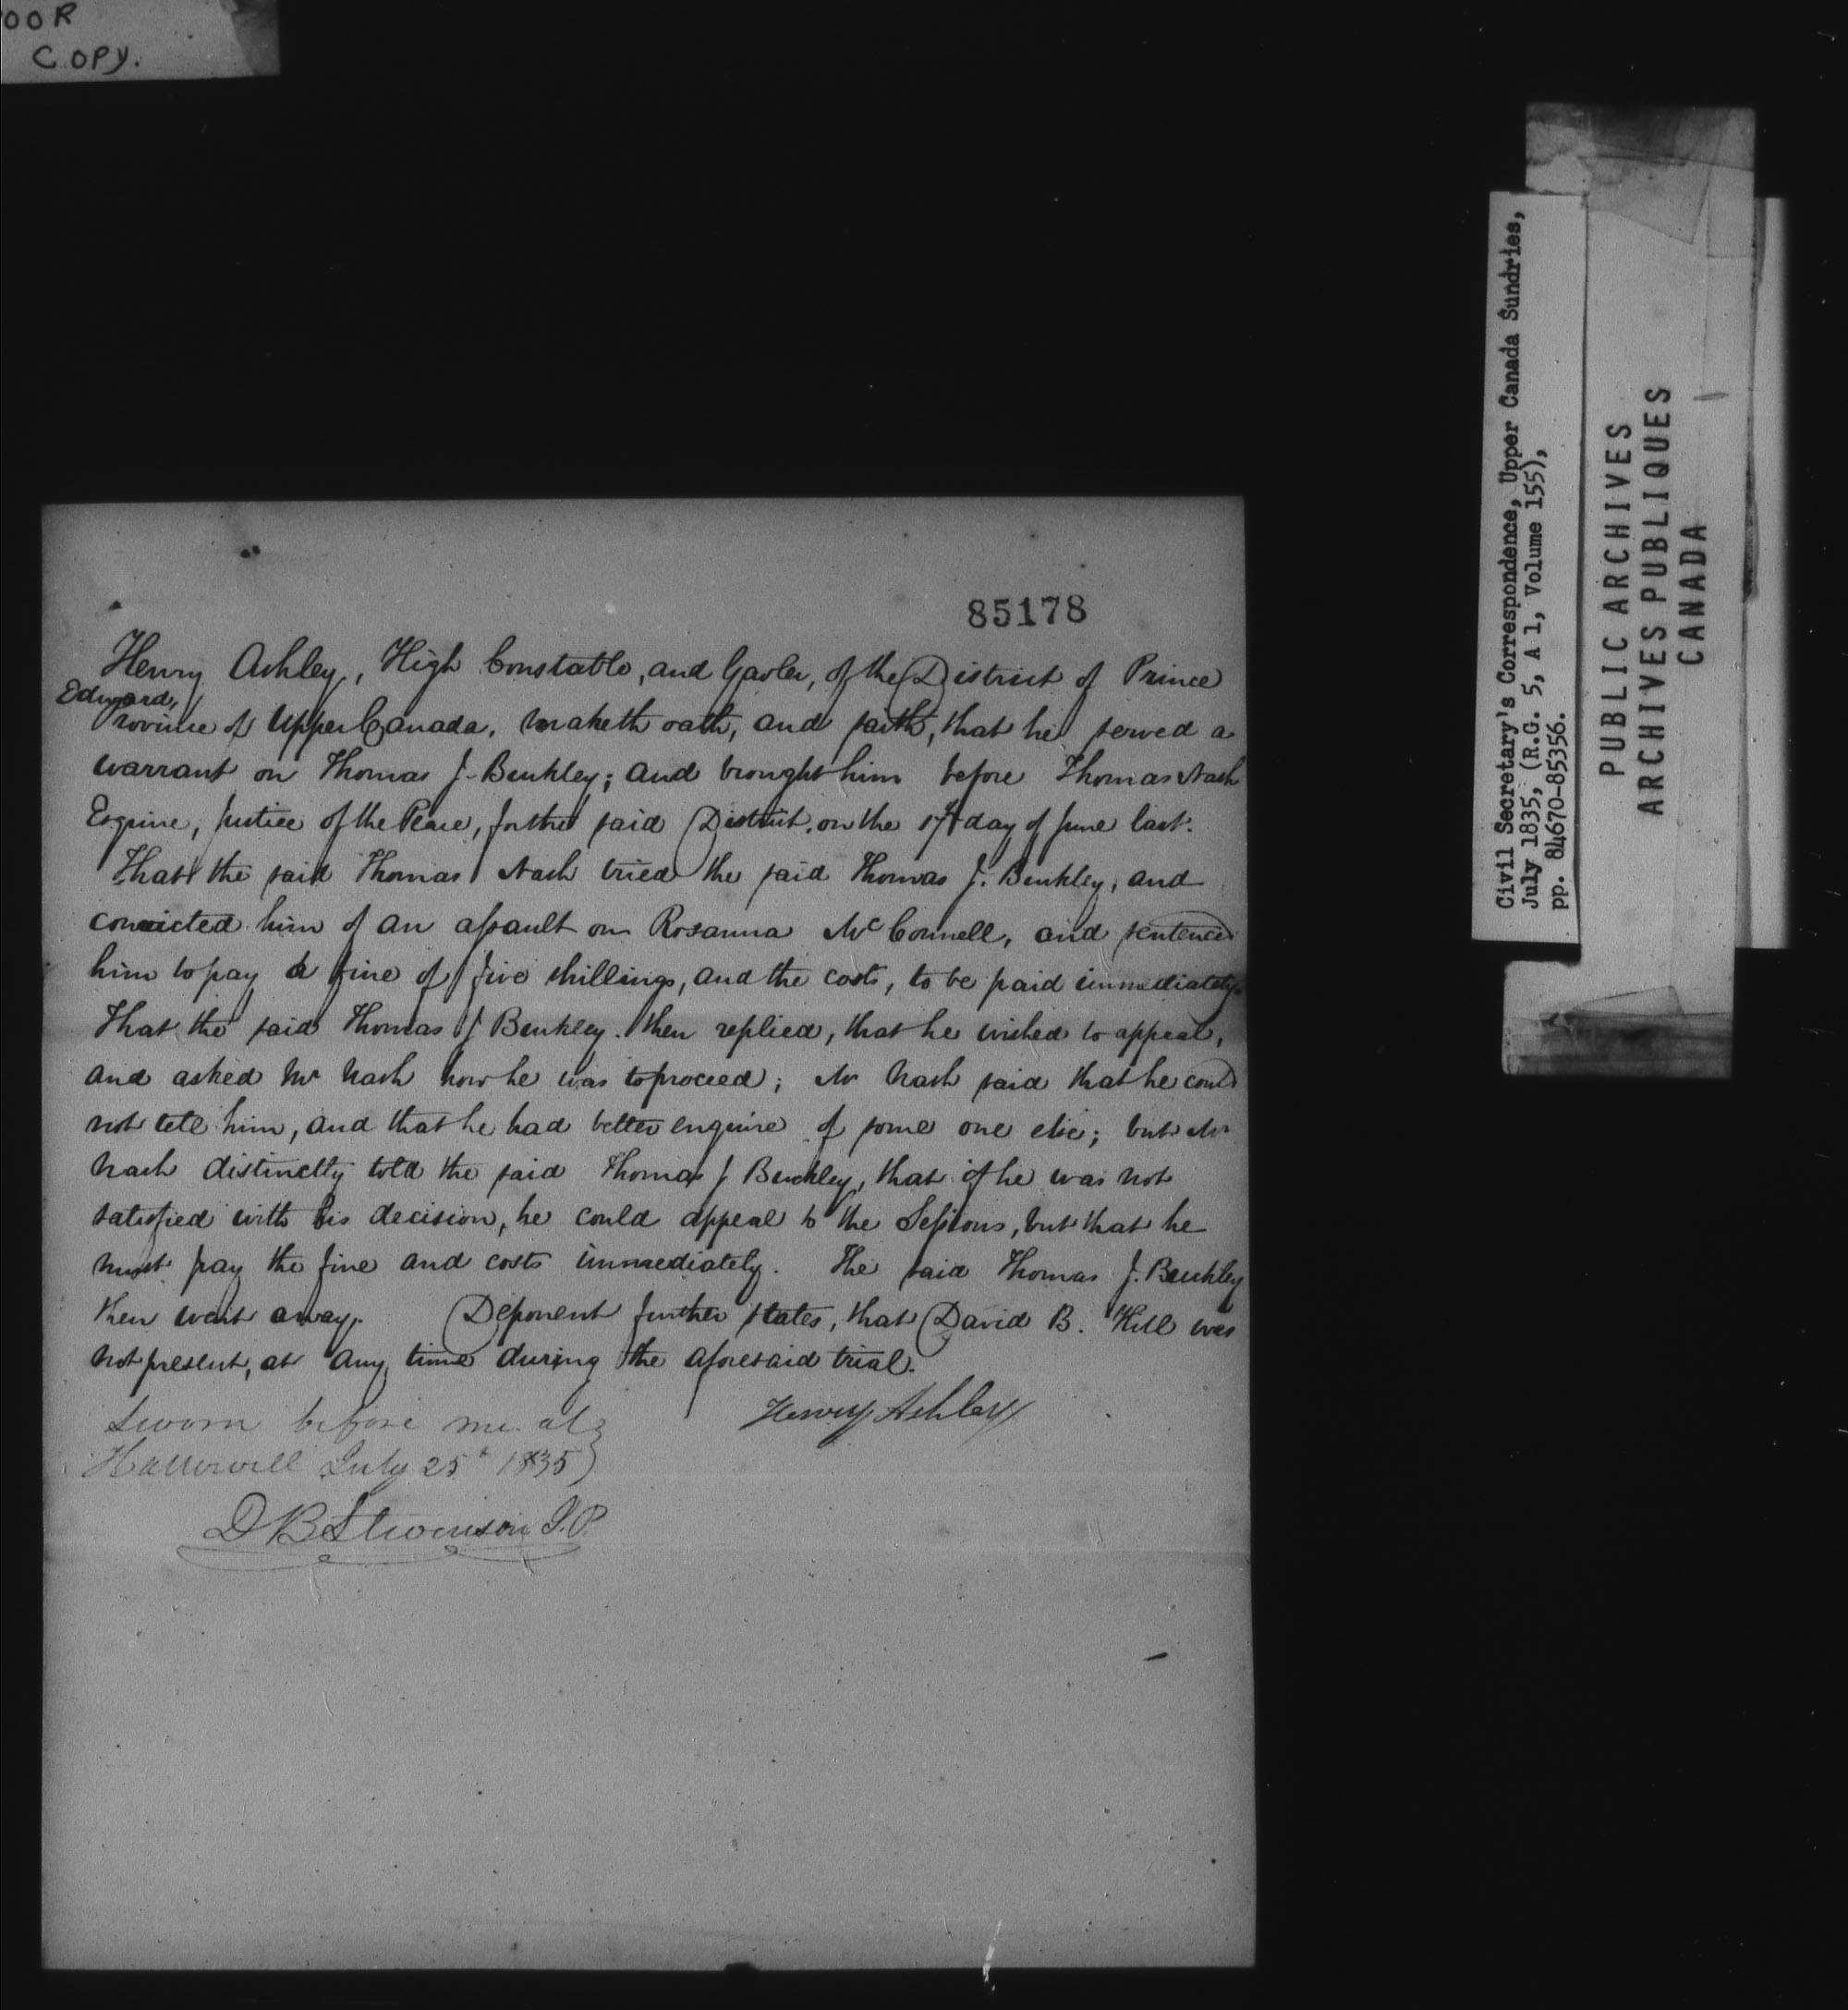 OOR
COPY.
85178
Henry Ashley, High Constable, and Gaoler, of the District of Prince
Edward,
Province of Upper Canada, maketh oath, and saith, that he served a
warrant on Thomas J. Benkley; and brought him before Thomas Nash
Esquire, Justice of the Peace, for the said District, on the 17th day of June last.
That the said Thomas Nash tried the said Thomas J. Benkley, and
convicted him of an assault on Rosanna McConnell, and sentenced
him to pay a fine of five shillings, and the costs, to be paid immediately.
That the said Thomas J Benkley. then replied, that he wished to appeal,
and asked Mr Nash how he was to proceed; Mr Nash said that he could
not tell him, and that he had better enquire of some one else; but Mr
Nash distinctly told the said Thomas J Benkley, that if he was not
satisfied with his decision, he could appeal to the Sessions, but that he
must pay the fine and costs immediately. The said Thomas J. Benkley
then went away. Deponent further states, that David B. Hill was
not present, at any time during the aforesaid trial.
Henry Ashley
Sworn before me at
Hallowell July 25th 1835
D B Stevenson J.P.
Civil Secretary's Correspondence, Upper Canada Sundries,
July 1835, (R.G. 5, A 1, Volume 155),
pp. 84670-85356.
PUBLIC ARCHIVES
ARCHIVES PUBLIQUES
CANADA